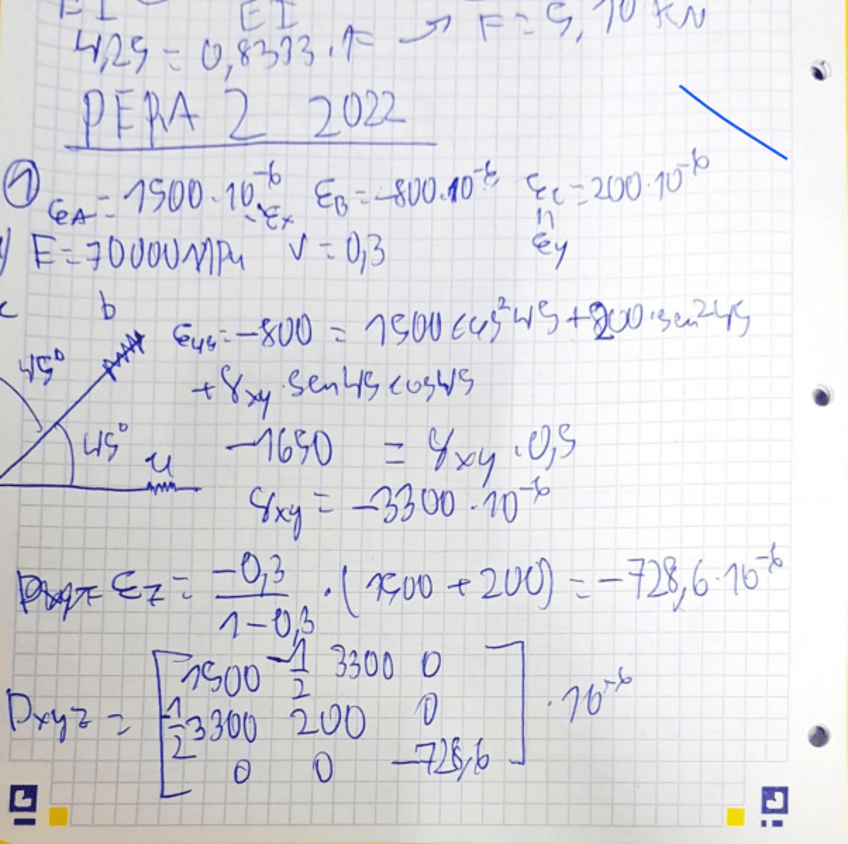 EI EI
4,25 = 0,8333 · F → F = 5,10 KN
PERA 2 2022
1 εA = 1500 · 10^-6 = εx εB = -800 · 10^-6 εc = 200 · 10^-6
= εy
E = 70000 MPa ν = 0,3
c b
ε45 = -800 = 1500 cos²45 + 200 · sen²45
45°
+ γxy · sen 45 cos 45
45° a
-1650 = γxy · 0,5
γxy = -3300 · 10^-6
εz = -0,3 / 1-0,3 · (1500 + 200) = -728,6 · 10^-6
1500 -1/2 3300 0
Dxyz = -1/2 3300 200 0 · 10^-6
0 0 -728,6